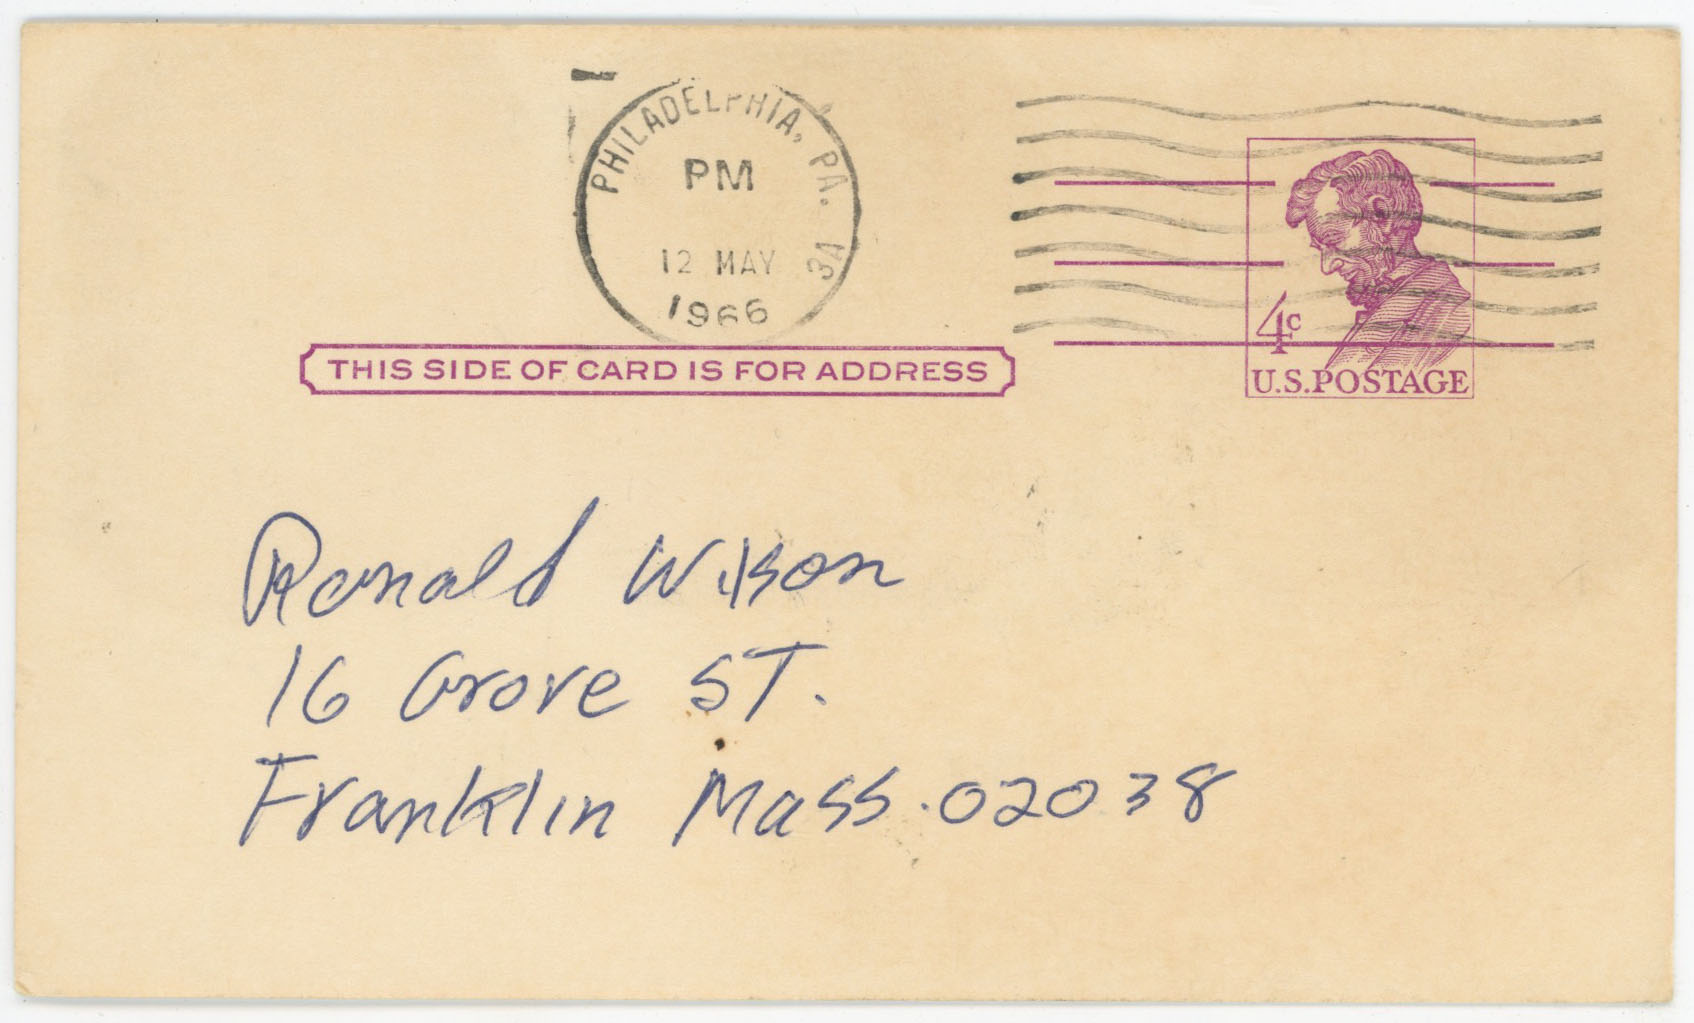 PHILADELPHIA, PA. 3A
PM
12 MAY
1966
4c
U.S.POSTAGE
THIS SIDE OF CARD IS FOR ADDRESS
Ronald Wilson
16 Grove ST.
Franklin Mass. 02038